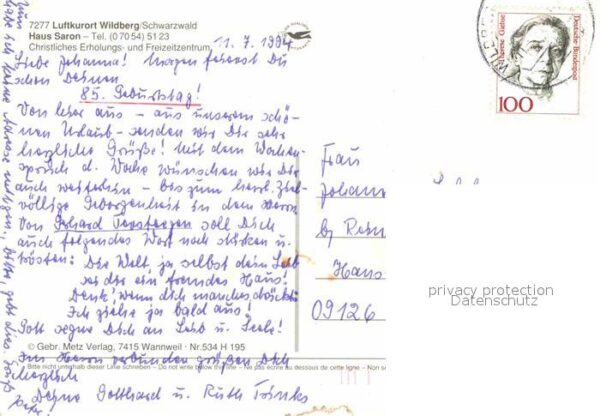 7277 Luftkurort Wildberg/Schwarzwald
Haus Saron – Tel. (0 70 54) 51 23
Christliches Erholungs- und Freizeitzentrum
11.7.1994
Liebe Johanna! Morgen feierst Du
schon Deinen
85. Geburtstag!
Von hier aus – aus unserem schö-
nen Urlaub – senden wir Dir sehr
herzliche Grüße! Mit dem Wochen-
spruch d. Woche wünschen wir Dir
auch weiterhin – bis zum herrl. Ziel
völlige Geborgenheit in dem Herrn
Von Gerhard Tersteegen soll Dich
auch folgendes Wort noch stärken u.
trösten: Die Welt ja selbst dein Leib
sei dir ein fremdes Haus!
Denk' wenn dich manches drückt:
Ich ziehe ja bald aus!
Gott segne Dich an Leib u. Seele!
© Gebr. Metz Verlag, 7415 Wannweil · Nr. 534 H 195
Im Herrn verbunden grüßen Dich
Bitte nicht unterhalb dieser Linie schreiben – Do not write below this line – Ne pas écrire au dessous de cette ligne – Non
herzlich
Deine Gotthard u. Ruth
habe ich keine Adresse
Bitte,
Frau
Johann
by
Haus
09126
Deutsche Bundespost
100
privacy protection
Datenschutz